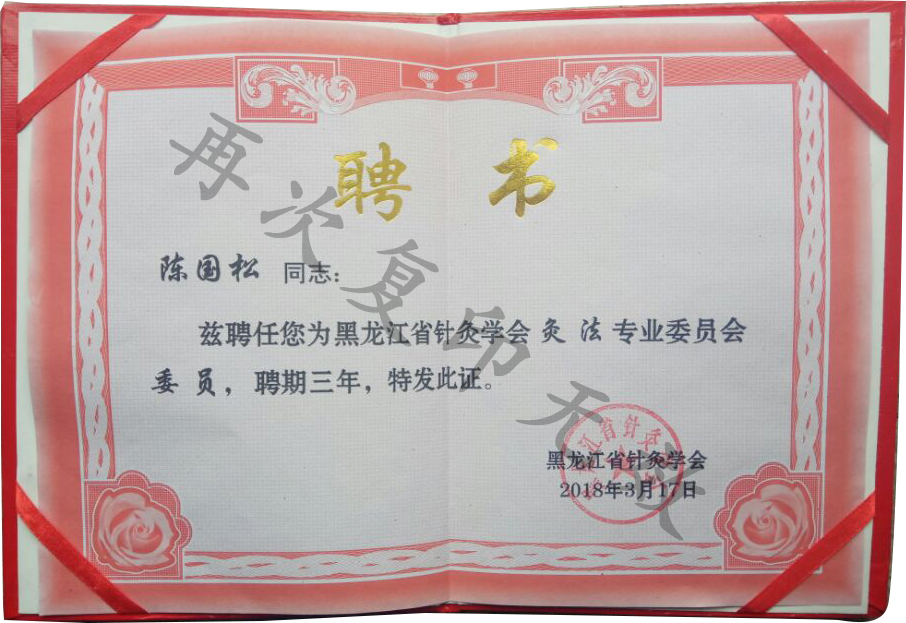 聘 书
陈国松 同志：
兹聘任您为黑龙江省针灸学会 灸 法 专业委员会
委 员，聘期三年，特发此证。
黑龙江省针灸学会
2018年3月17日
再次复印无效